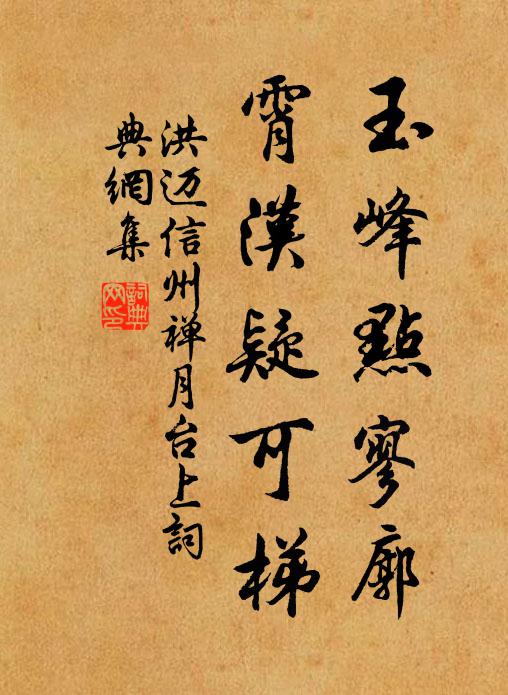 玉峰點寥廓
霄漢疑可梯
洪迈信州禅月台上詞
典網集
詞典
网印